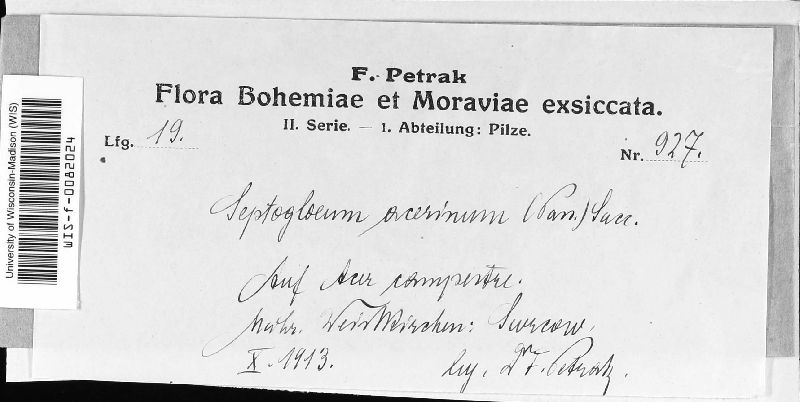 F. Petrak
Flora Bohemiae et Moraviae exsiccata.
II. Serie. — I. Abteilung: Pilze.
Lfg. 19.
Nr. 927.
Septogloeum acerinum (Pass.) Sacc.
Auf Acer campestre.
Mähr. Weisskirchen:
X. 1913.
leg. Dr F. Petrak.
University of Wisconsin-Madison (WIS)
WIS-f-0082024